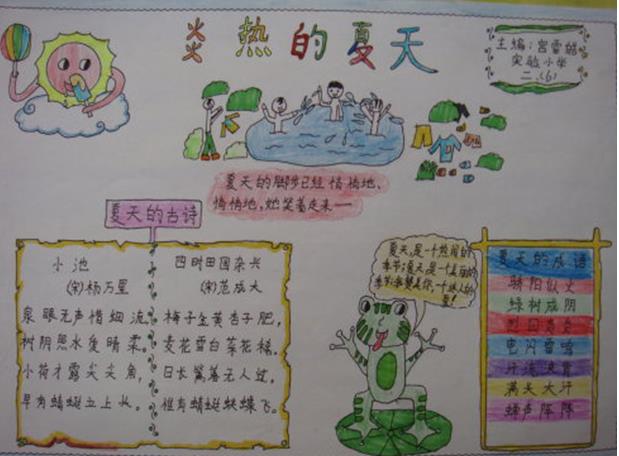 炎热的夏天
主编:宫雪
实验小学
二.(6)
夏天的脚步已经悄悄地、
悄悄地,她笑着走来——
夏天的古诗
小池
(宋)杨万里
泉眼无声惜细流,
树阴照水爱晴柔。
小荷才露尖尖角,
早有蜻蜓立上头。
四时田园杂兴
(宋)范成大
梅子金黄杏子肥,
麦花雪白菜花稀。
日长篱着无人过,
惟有蜻蜓蛱蝶飞。
夏天,是一个热闹的
季节;夏天是一个美丽的
季节;
夏天的成语
骄阳似火
绿树成阴
烈日炎炎
电闪雷鸣
汗流浃背
满头大汗
蝉声阵阵